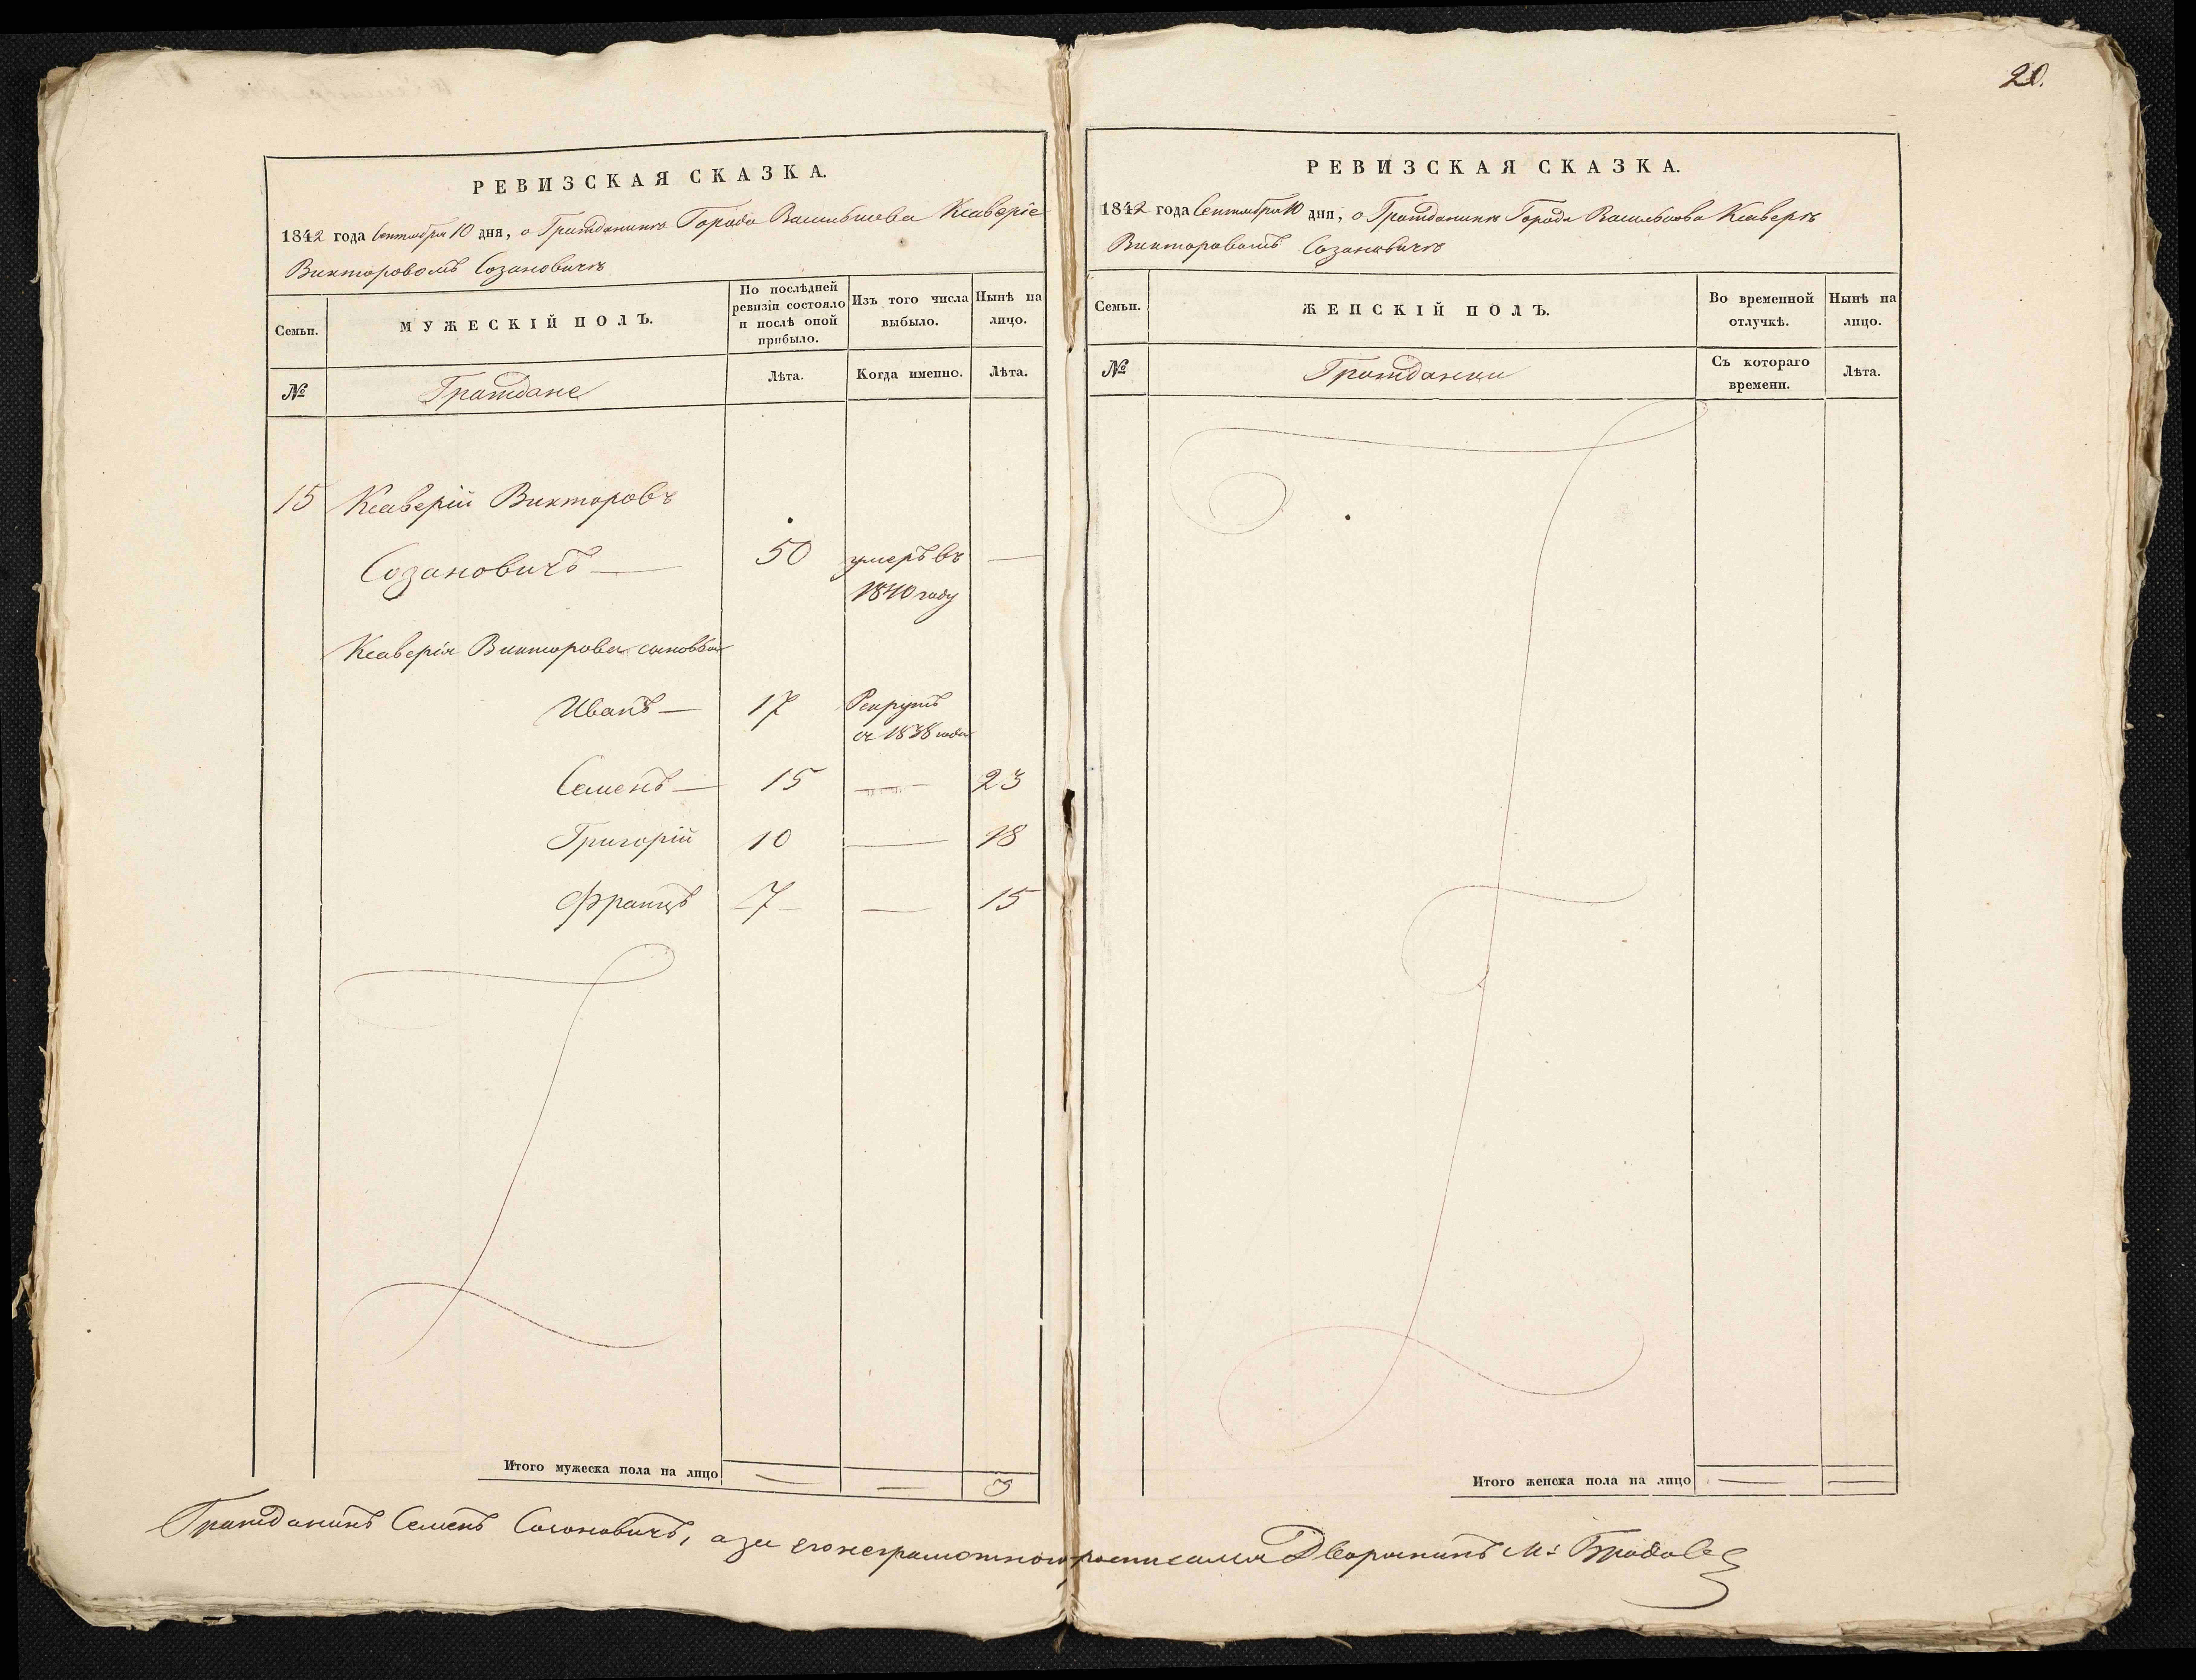 20.
РЕВИЗСКАЯ СКАЗКА.
1842 года Сентября 10 дня, о Гражданинѣ Города Василькова Ксаверіе
Викторовомъ Созановичѣ
Семьи.
МУЖЕСКІЙ ПОЛЪ.
По послѣдней
ревизіи состояло
и послѣ оной
прибыло.
Изъ того числа
выбыло.
Нынѣ на
лицо.
№
Граждане
Лѣта.
Когда именно.
Лѣта.
15 Ксаверій Викторовъ
Созановичъ — 50 умеръ въ —
1840 году
Ксаверія Викторова сыновья
Иванъ — 17 Рекрутъ
съ 1838 года
Семенъ — 15 — 23
Григорій 10 — 18
Францъ 7 — — 15
Итого мужеска пола на лицо — — 3
РЕВИЗСКАЯ СКАЗКА.
1842 года Сентября 10 дня, о Гражданинѣ Города Василькова Ксаверѣ
Викторовомъ Созановичѣ
Семьи.
ЖЕНСКІЙ ПОЛЪ.
Во временной
отлучкѣ.
Нынѣ на
лицо.
№
Гражданки
Съ котораго
времени.
Лѣта.
Итого женска пола на лицо — —
Гражданинъ Семенъ Созоновичъ, а за его неграмотного росписался Дворянинъ М: